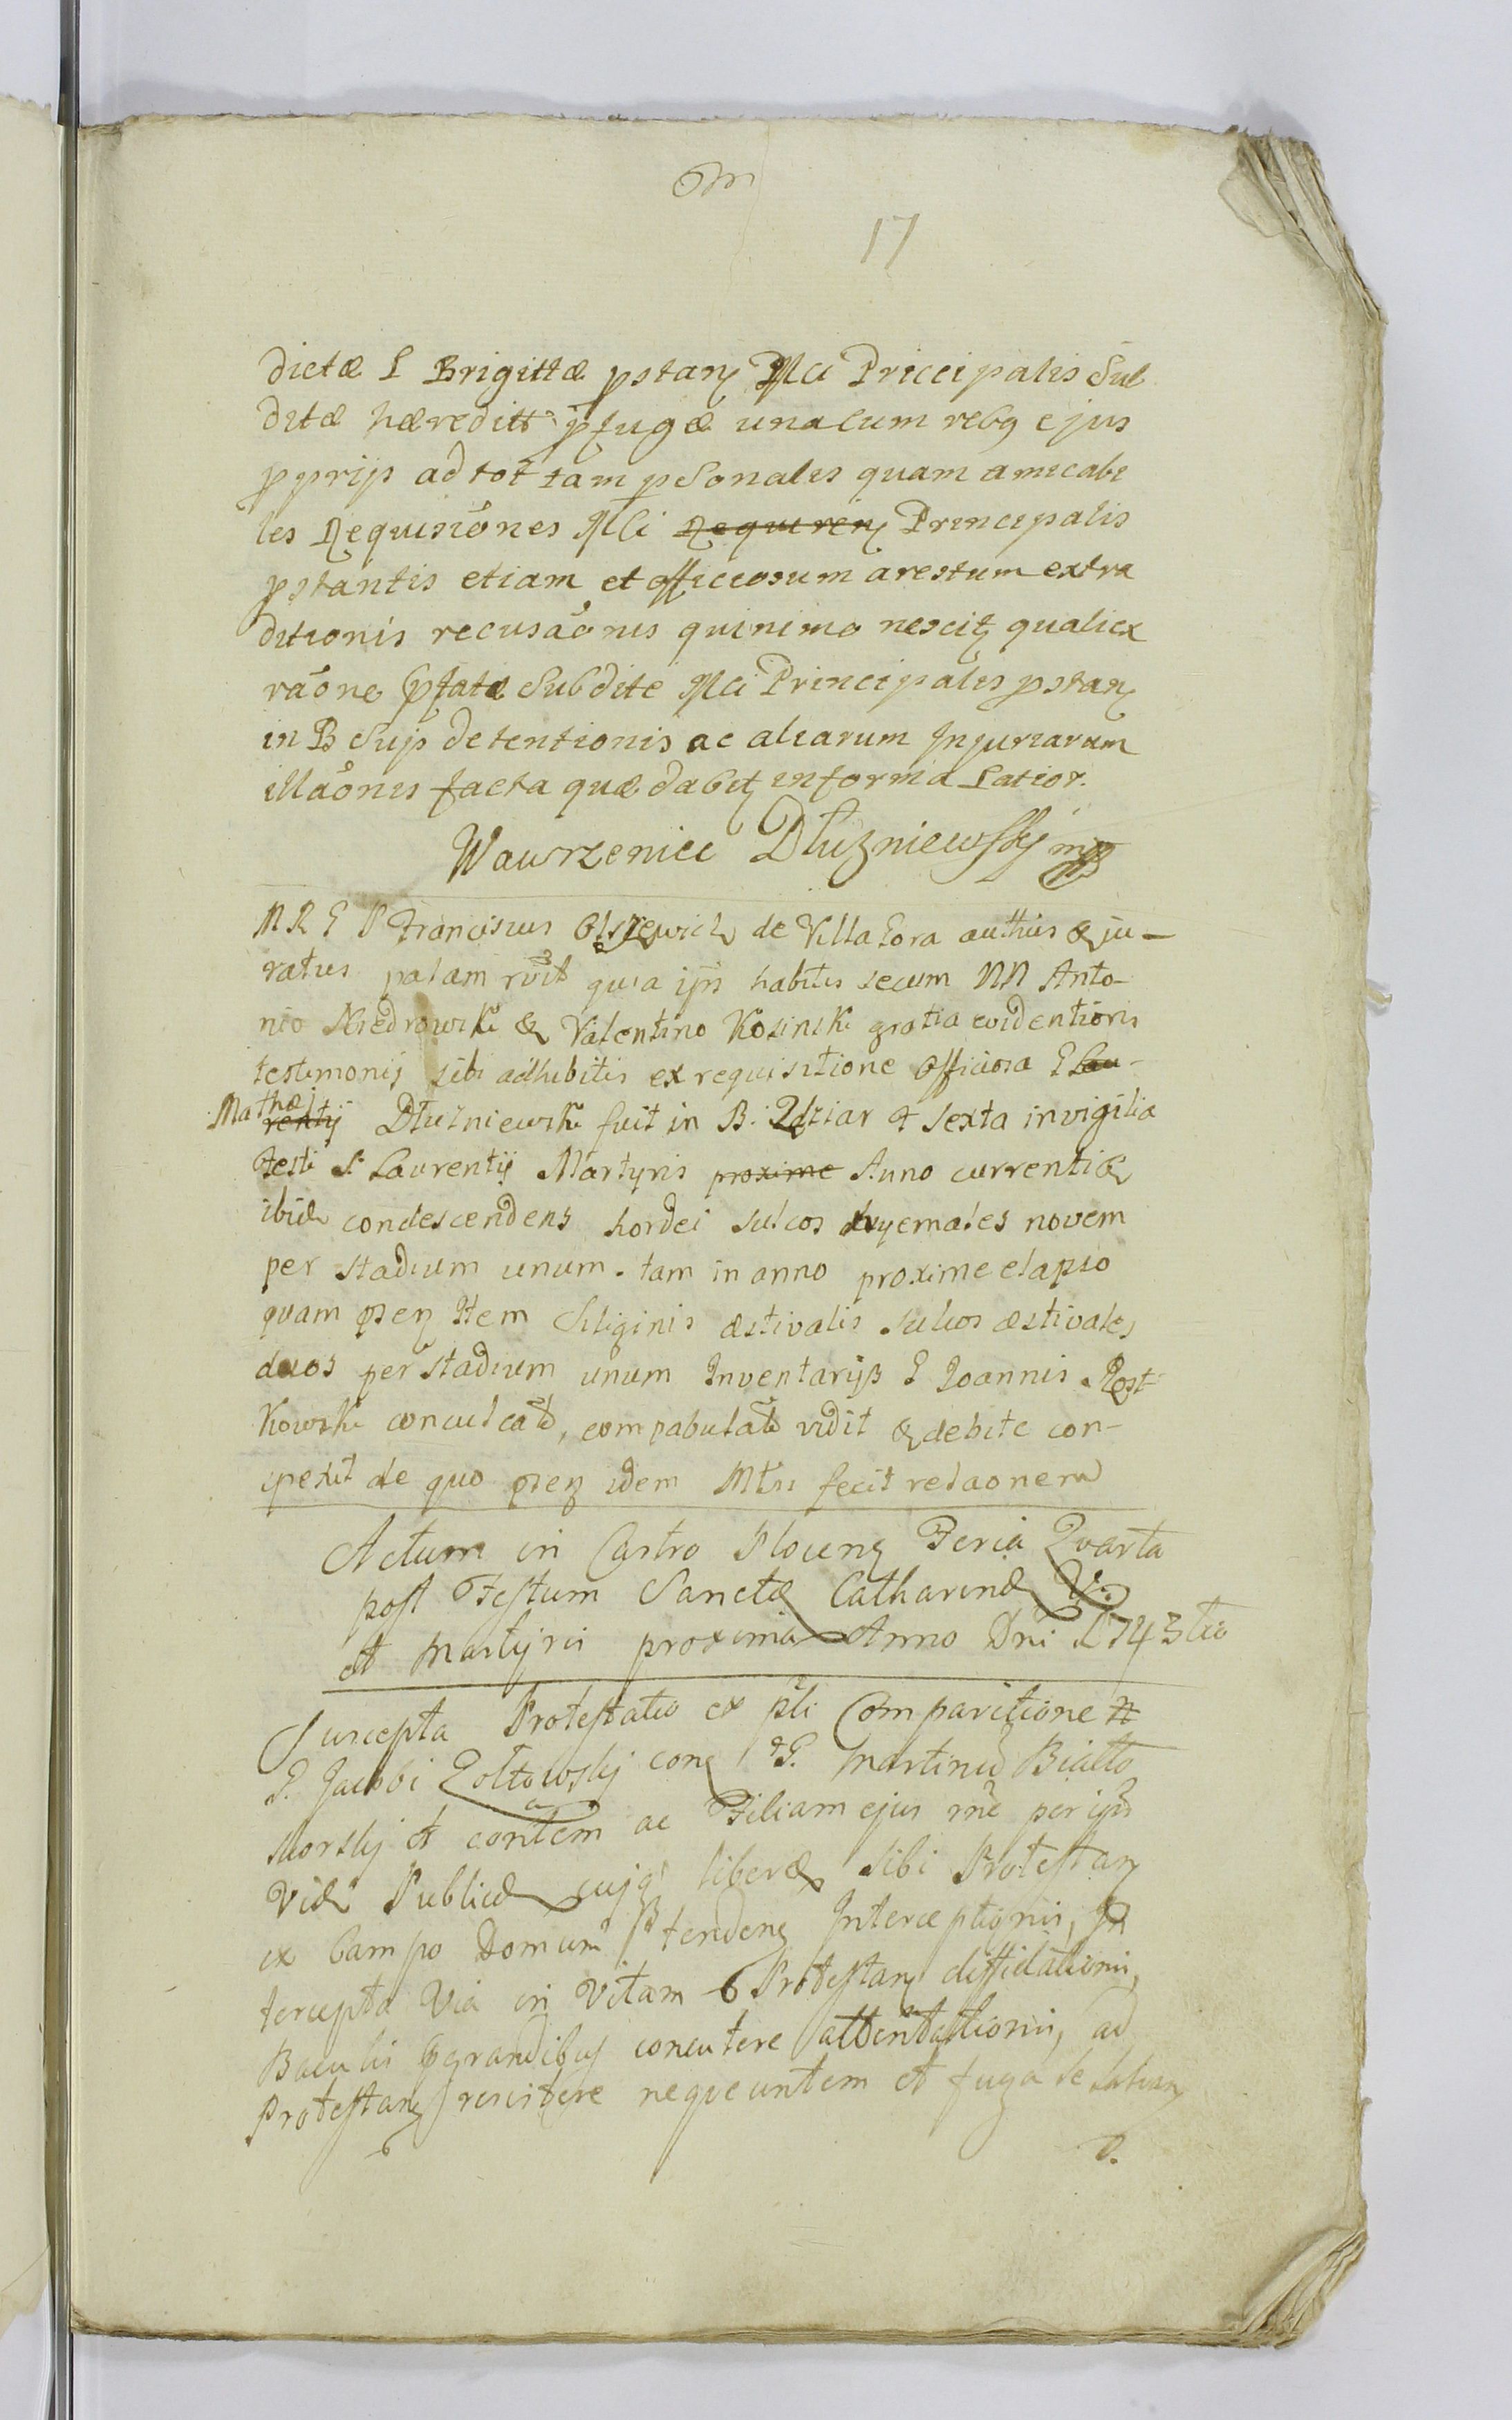 17
dictæ L Brigittæ pstan Mci Priccipalis Sub
ditæ hæreditt pfugæ una cum rebq ejus
pprijs ad tot tam psonales quam amicabi
les Requisiones Mci Requiren Principalis
pstantis etiam et officiosum arestum extra
ditionis recusaonis quinimo nescitz qualiex
raone pfatæ Subdite Mci Principalis pstan
in B Sujs detentionis ac aliarum Injuriarum
illaonis facta quæ dabitz informa Latior.
Wawrzeniec Dłuzniewsky mp
M R G P Franciscus Olszewich de Villa Gora authus & ju-
ratus palam rvit quia ijs habitis secum NN Anto-
nio Niedrowski & Valentino Kosinski gratia evidentioris
testimonij sibi adhibitis ex requisitione Officiosa G Lau-
Mathæi rentij Dłuzniewski fuit in B. Zdziar f Sexta in vigilia
Festi S Laurentij Martyris proxime Anno currenti &
ibide condescendens hordei sulcos hyemales novem
per stadium unum. tam in anno proxime elapso
quam psen Item Siliginis æstivalis sulcos æstivales
duos per stadium unum Inventarijs G Joannis Rost-
kowski conculcat, compabulat vidit & debite con-
spexit de quo psen idem Mtri fecit relaonem
Actum in Castro Plocen Feria Quarta
post Festum Sanctæ Catharinæ V.
et Martyris proxima Anno Dni 1743tio
Suscepta Protestatio ex pli Comparitione N
G. Jacobi Zołtowskj con G. Martinu Biało
skorskj et contem ac Filiam ejus rne per ips
Viæ Publicæ cujq liberæ sibi Protestan
ex Campo Domum tenden Interceptionis, In
tercepta Via in Vitam Protestan diffidationis,
Baculis grandibus concutere attentationis, ad
Protestan resistere nequeuntem et fuga se salvan